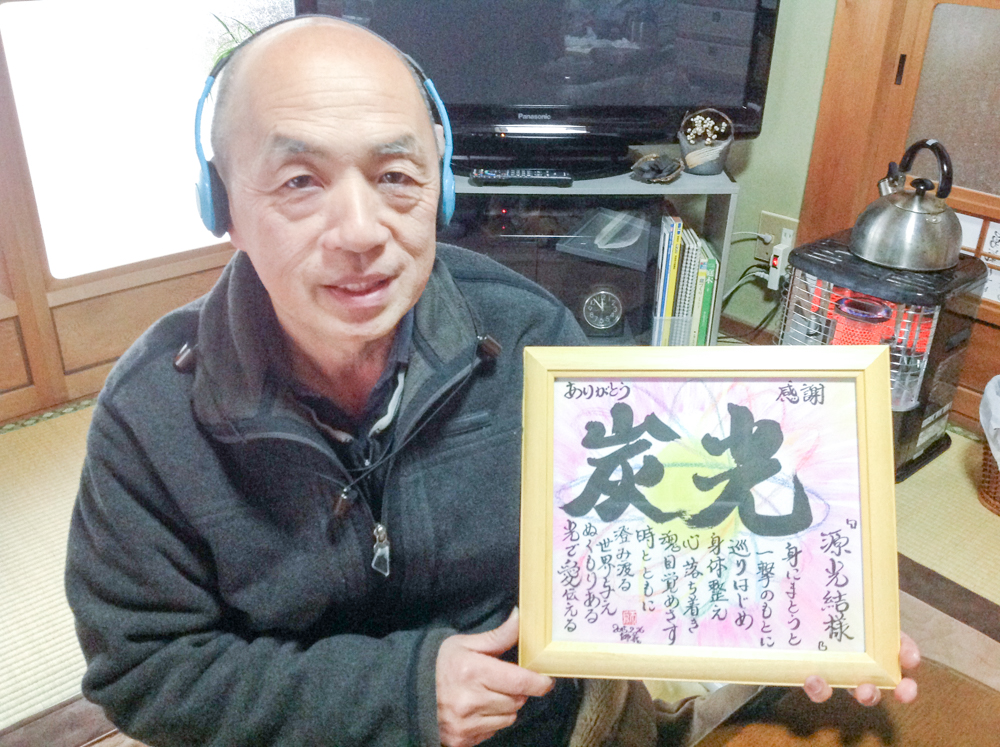 Panasonic
ありがとう
感謝
炭光
『源光結様』
身にまとうと
一撃のもとに
巡りはじめ
身体整え
心落ち着き
魂目覚めさす
時とともに
澄み渡る
世界
ぬくもりある
光で愛伝える